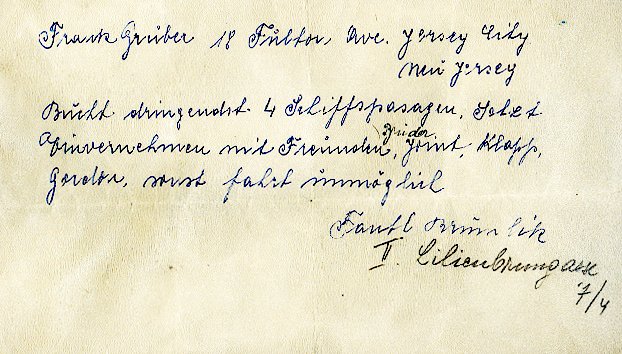 Frank Gruber 18 Fulton, Ave. Jersey City
Neu Jersey
Bucht dringendst 4 Schiffspasagen, Setzt
Bruder
Einvernehmen mit Freunden, Joint, Klapp,
Gordon, sonst fahrt unmöglich
Fantl Brumlik
II. Lilienbrungasse
7/4